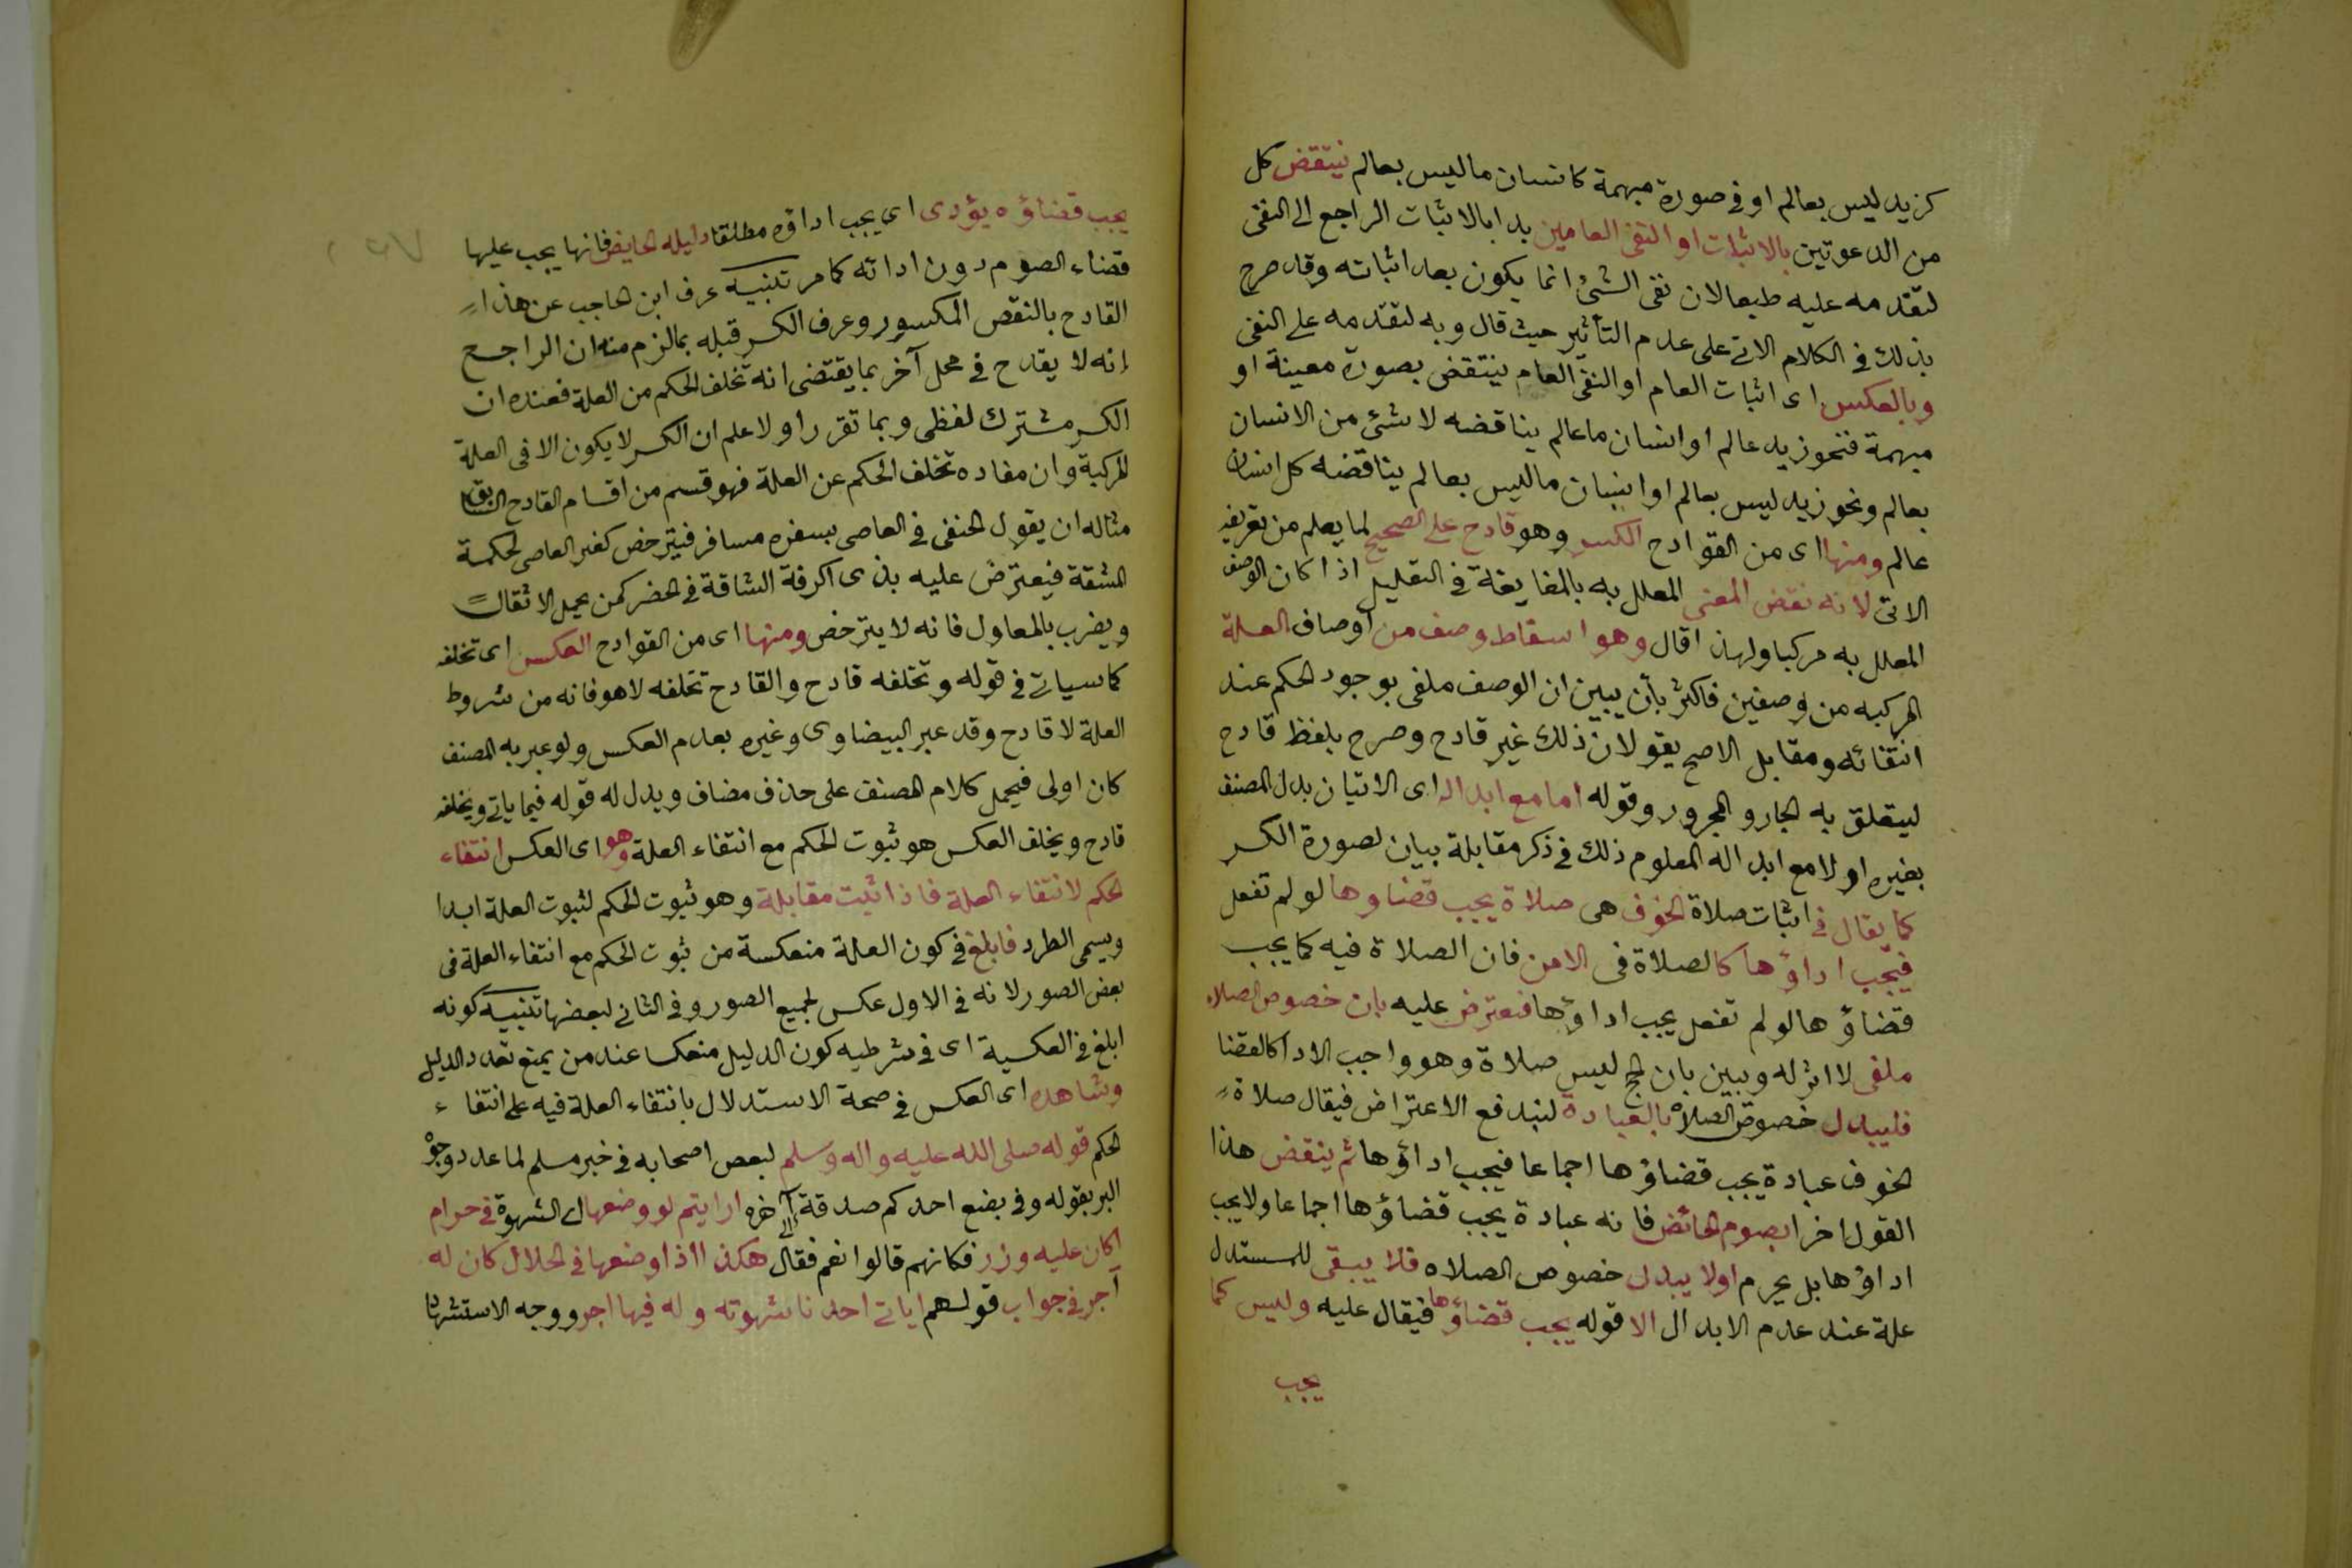 كزيد ليس بعالم او فى صورة مبهمة كانسان ما ليس بعالم ينتقض كل
من الدعوتين بالاثبات او النفى العامين بدا بالاثبات الراجع الى النفى
لتقدمه عليه طبعا لان نفى الشئ انما يكون بعد اثباته وقد صرح
بذلك فى الكلام الاتى على عدم التأثير حيث قال وبه لتقدمه على النفى
وبالعكس اى اثبات العام او النفى العام ينتقض بصورة معينة او
مبهمة فنحو زيد عالم او انسان ما عالم يناقضه لا شئ من الانسان
بعالم ونحو زيد ليس بعالم او انسان ما ليس بعالم يناقضه كل انسان
عالم ومنها اى من القوادح الكسر وهو قادح على الصحيح لما يعلم من تعريفه
الاتى لانه نقض المعنى المعلل به بالغا يغة فى التعليل اذا كان الوصف
المعلل به مركبا ولهذا قال وهو اسقاط وصف من أوصاف العلة
المركبه من وصفين فاكثر بأن يبين ان الوصف ملغى بوجود الحكم عند
انتفائه ومقابل الاصح يقولان ذلك غير قادح وصرح بلفظ قادح
ليتعلق به الجار والمجرور وقوله اما مع ابداله اى الاتيان بدل المصنف
بغيره او لا مع ابداله المعلوم ذلك فى ذكر مقابلة بيان لصورة الكسر
كما يقال فى اثبات صلاة الخوف هى صلاة يجب قضاوها لو لم تفعل
فيجب اداؤها كالصلاة فى الامن فان الصلاة فيه كما يجب
قضاؤها لو لم تفعل يجب اداؤها فنعترض عليه بان خصوص الصلاه
ملغى لا اثر له ويبين بان الحج ليس صلاة وهو واجب الادا كالقضا
فليبدل خصوص الصلاه بالعبادة ليندفع الاعتراض فيقال صلاة
الخوف عبادة يجب قضاؤها اجماعا فيجب اداؤها ثم ينقض هذا
القول اخرا بصوم الحائض فانه عبادة يجب قضاؤها اجماعا ولا يجب
اداؤها بل يحرم اولا يبدل خصوص الصلاه فلا يبقى للمستدل
علة عند عدم الابدال الا قوله يجب قضاؤها فيقال عليه وليس كما
يجب
يجب قضاؤه يؤدى اى يجب اداؤه مطلقا دليله الحايض فانها يجب عليها
قضاء الصوم دون ادائه كما مر تنبيه عرف ابن الحاجب عن هذا
القادح بالنقض المكسور وعرف الكسر قبله بما لزم منه ان الراجح
انه لا يقدح فى محل آخر بما يقتضى انه تخلف الحكم من العلة فعنده ان
الكسر مشترك لفظى وبما تقرر اولا علم ان الكسر لا يكون الا فى العلة
المركبة وان مفاده تخلف الحكم عن العلة فهو قسم من اقسام القادح السابق
مثاله ان يقول الحنفى فى العاصى بسفره مسافر فيترخص كغير العاصى لحكمة
المشقة فيعترض عليه بذى الحرفة الشاقة فى الحضر كمن يحمل الاثقال
ويضرب بالمعاول فانه لا يترخص ومنها اى من القوادح العكس اى تخلفه
كما سياتى فى قوله وتخلفه قادح والقادح تخلفه لا هو فانه من شروط
العلة لا قادح وقد عبر البيضاوى وغيره بعدم العكس ولو عبر به المصنف
كان اولى فيحمل كلام المصنف على حذف مضاف ويدل له قوله فيما ياتى ويخلفه
قادح ويخلف العكس هو ثبوت الحكم مع انتفاء العلة وهو اى العكس انتفاء
الحكم لانتفاء العلة فاذا اثبت مقابلة وهو ثبوت الحكم لثبوت العلة ابدا
ويسمى الطرد فابلغ فى كون العلة منعكسة من ثبوت الحكم مع انتفاء العلة فى
بعض الصور لانه فى الاول عكس لجميع الصور وفى الثانى لبعضها تنبيه كونه
ابلغ فى العكسية اى فى شرطيه كون الدليل منعكسا عند من يمنع تعدد الدليل
وشاهده اى العكس فى صحة الاستدلال بانتفاء العلة فيه على انتفاء
الحكم قوله صلى الله عليه واله وسلم لبعض اصحابه فى خبر مسلم لما عدد وجوه
البر بقوله وفى بضع احدكم صدقة الى آخره ارايتم لو وضعها اى الشهوة فى حرام
اكان عليه وزر فكانهم قالوا نعم فقال هكذا اذا وضعها فى الحلال كان له
أجر فى جواب قولهم اياتى احدنا شهوته وله فيها اجر ووجه الاستشهاد